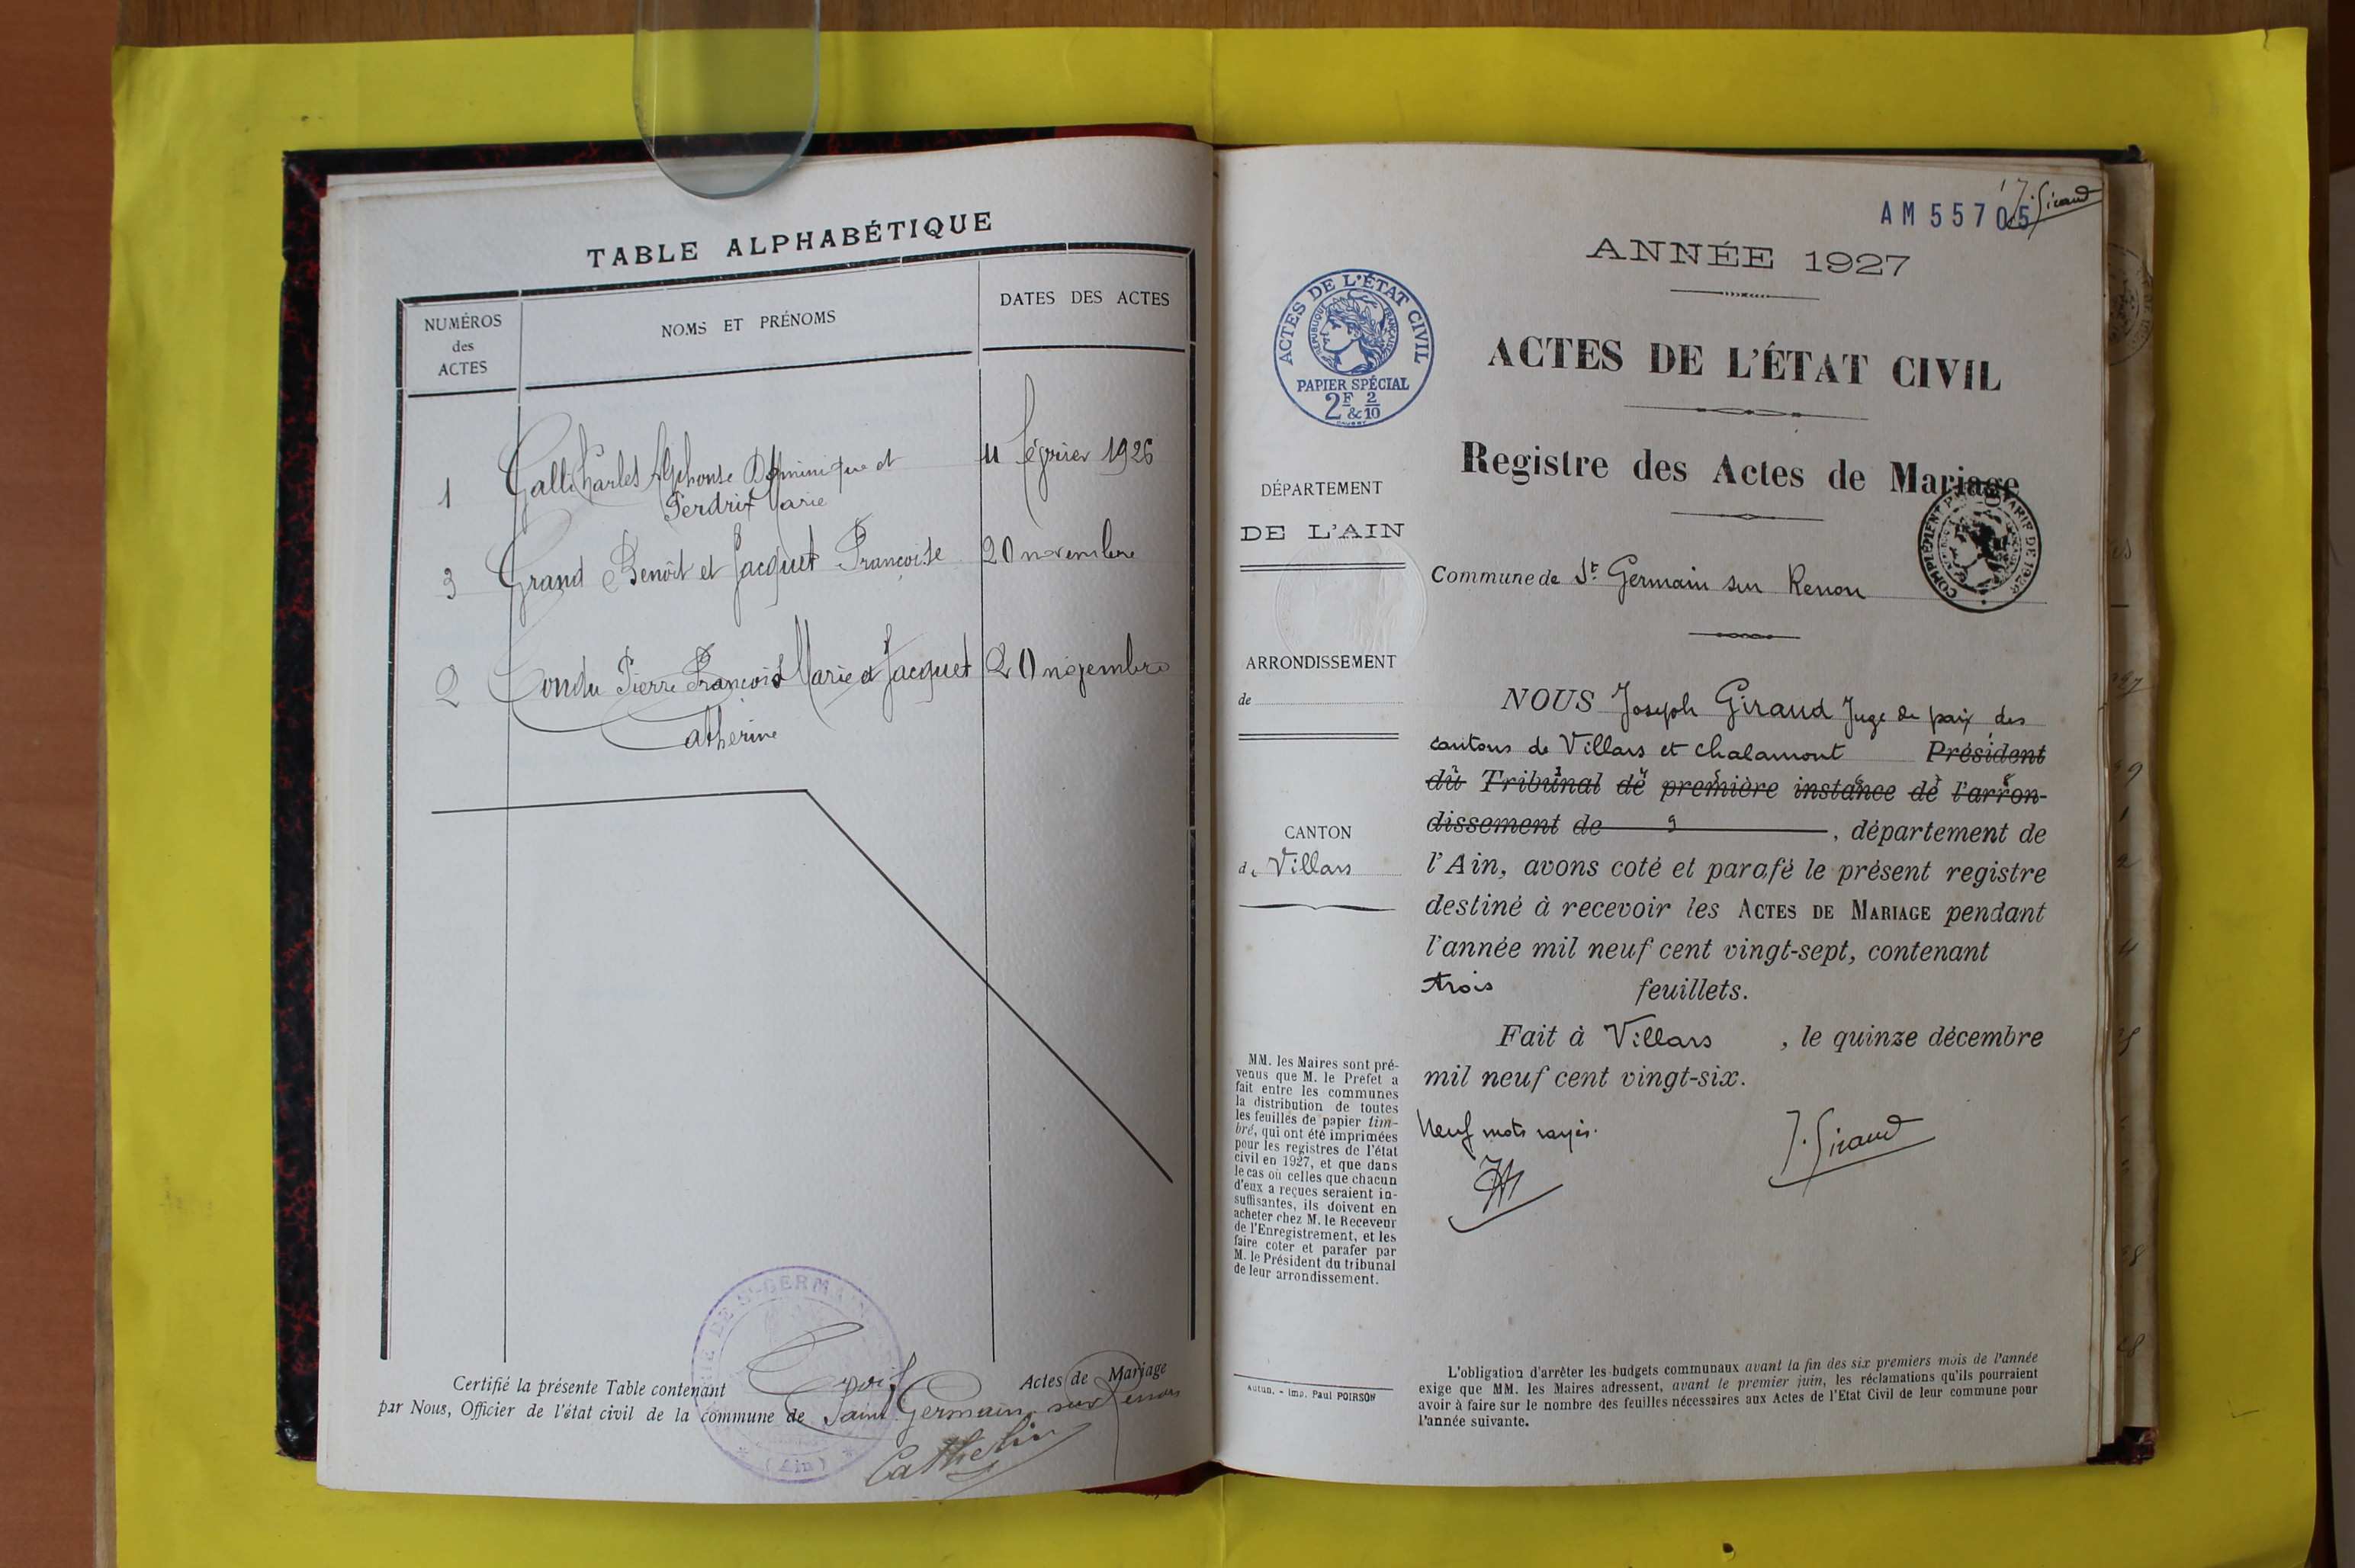 TABLE ALPHABÉTIQUE
NUMÉROS
des
ACTES
NOMS ET PRÉNOMS
DATES DES ACTES
1 Galli Charles Alphonse Dominique et février 1926
Perdrix Marie
3 Grand Benoît et Jacquet Françoise 20 novembre
2 Condu Pierre François Marie et Jacquet 20 novembre
Catherine
MAIRIE DE St GERMAIN
(Ain)
Certifié la présente Table contenant trois Actes de Mariage
par Nous, Officier de l'état civil de la commune de Saint Germain sur Renon
Cathelin
J. Giraud
AM 55705
ANNÉE 1927
ACTES DE L'ÉTAT CIVIL
RÉPUBLIQUE FRANÇAISE
PAPIER SPÉCIAL
2F & 2/10
ACTES DE L'ÉTAT CIVIL
Registre des Actes de Mariage
COMPLÉMENT TARIF DE 1926
DÉPARTEMENT
DE L'AIN
Commune de St Germain sur Renon
ARRONDISSEMENT
de
CANTON
de Villars
NOUS Joseph Giraud Juge de paix des
cantons de Villars et Chalamont Président
du Tribunal de première instance de l'arron-
dissement de 9, département de
l'Ain, avons coté et parafé le présent registre
destiné à recevoir les ACTES DE MARIAGE pendant
l'année mil neuf cent vingt-sept, contenant
trois feuillets.
Fait à Villars, le quinze décembre
mil neuf cent vingt-six.
Neuf mots rayés.
J. Giraud
MM. les Maires sont pré-
venus que M. le Prefet a
fait entre les communes
la distribution de toutes
les feuilles de papier tim-
bré, qui ont été imprimées
pour les registres de l'état
civil en 1927, et que dans
le cas où celles que chacun
d'eux a reçues seraient in-
suffisantes, ils doivent en
acheter chez M. le Receveur
de l'Enregistrement, et les
faire coter et parafer par
M. le Président du tribunal
de leur arrondissement.
Autun. - Imp. Paul POIRSON
L'obligation d'arrêter les budgets communaux avant la fin des six premiers mois de l'année
exige que MM. les Maires adressent, avant le premier juin, les réclamations qu'ils pourraient
avoir à faire sur le nombre des feuilles nécessaires aux Actes de l'Etat Civil de leur commune pour
l'année suivante.